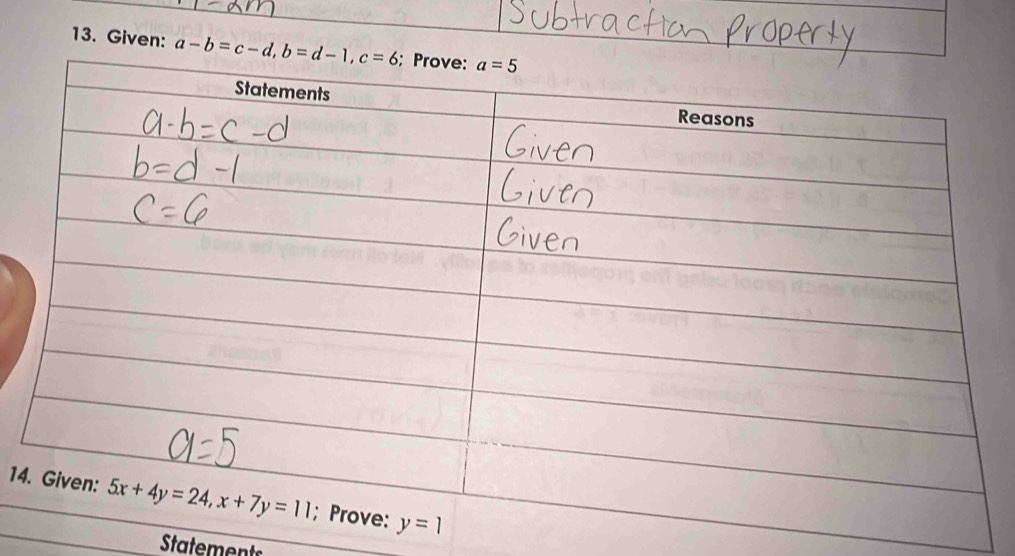 Subtraction Property
13. Given: a − b = c − d, b = d − 1, c = 6; Prove: a = 5
Statements Reasons
a - b = c - d Given
b = d - 1 Given
c = 6 Given
a = 5
14. Given: 5x + 4y = 24, x + 7y = 11; Prove: y = 1
Statements